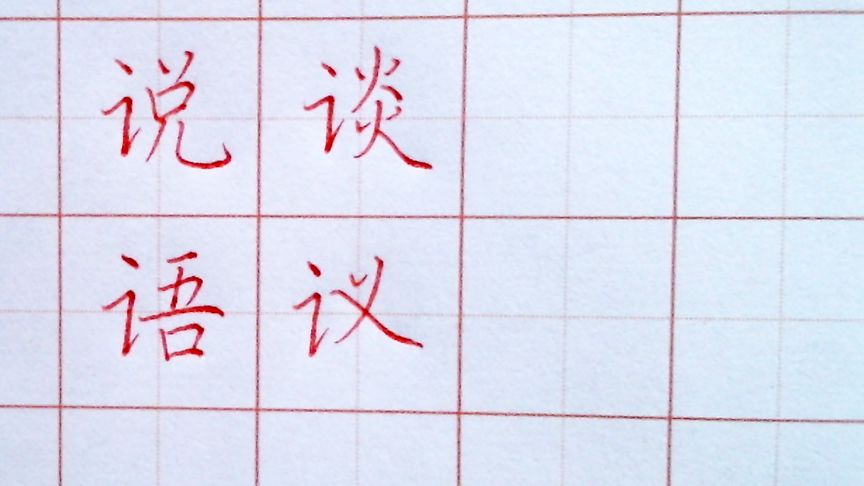 说谈
语议